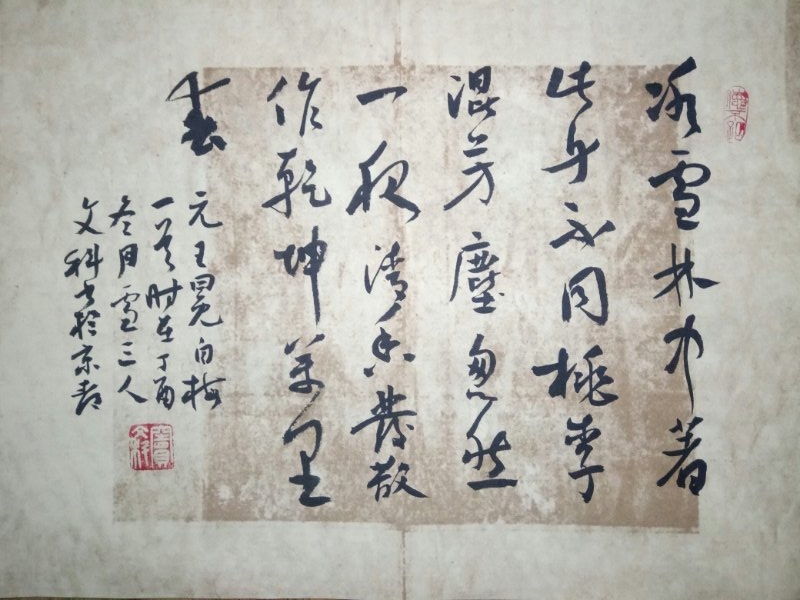 冰雪林中著
此身不同桃李
混芳塵忽然
一夜清香發散
作乾坤萬里
春
元王冕白梅
一首时在丁酉
冬月雪三人
文科书於京都